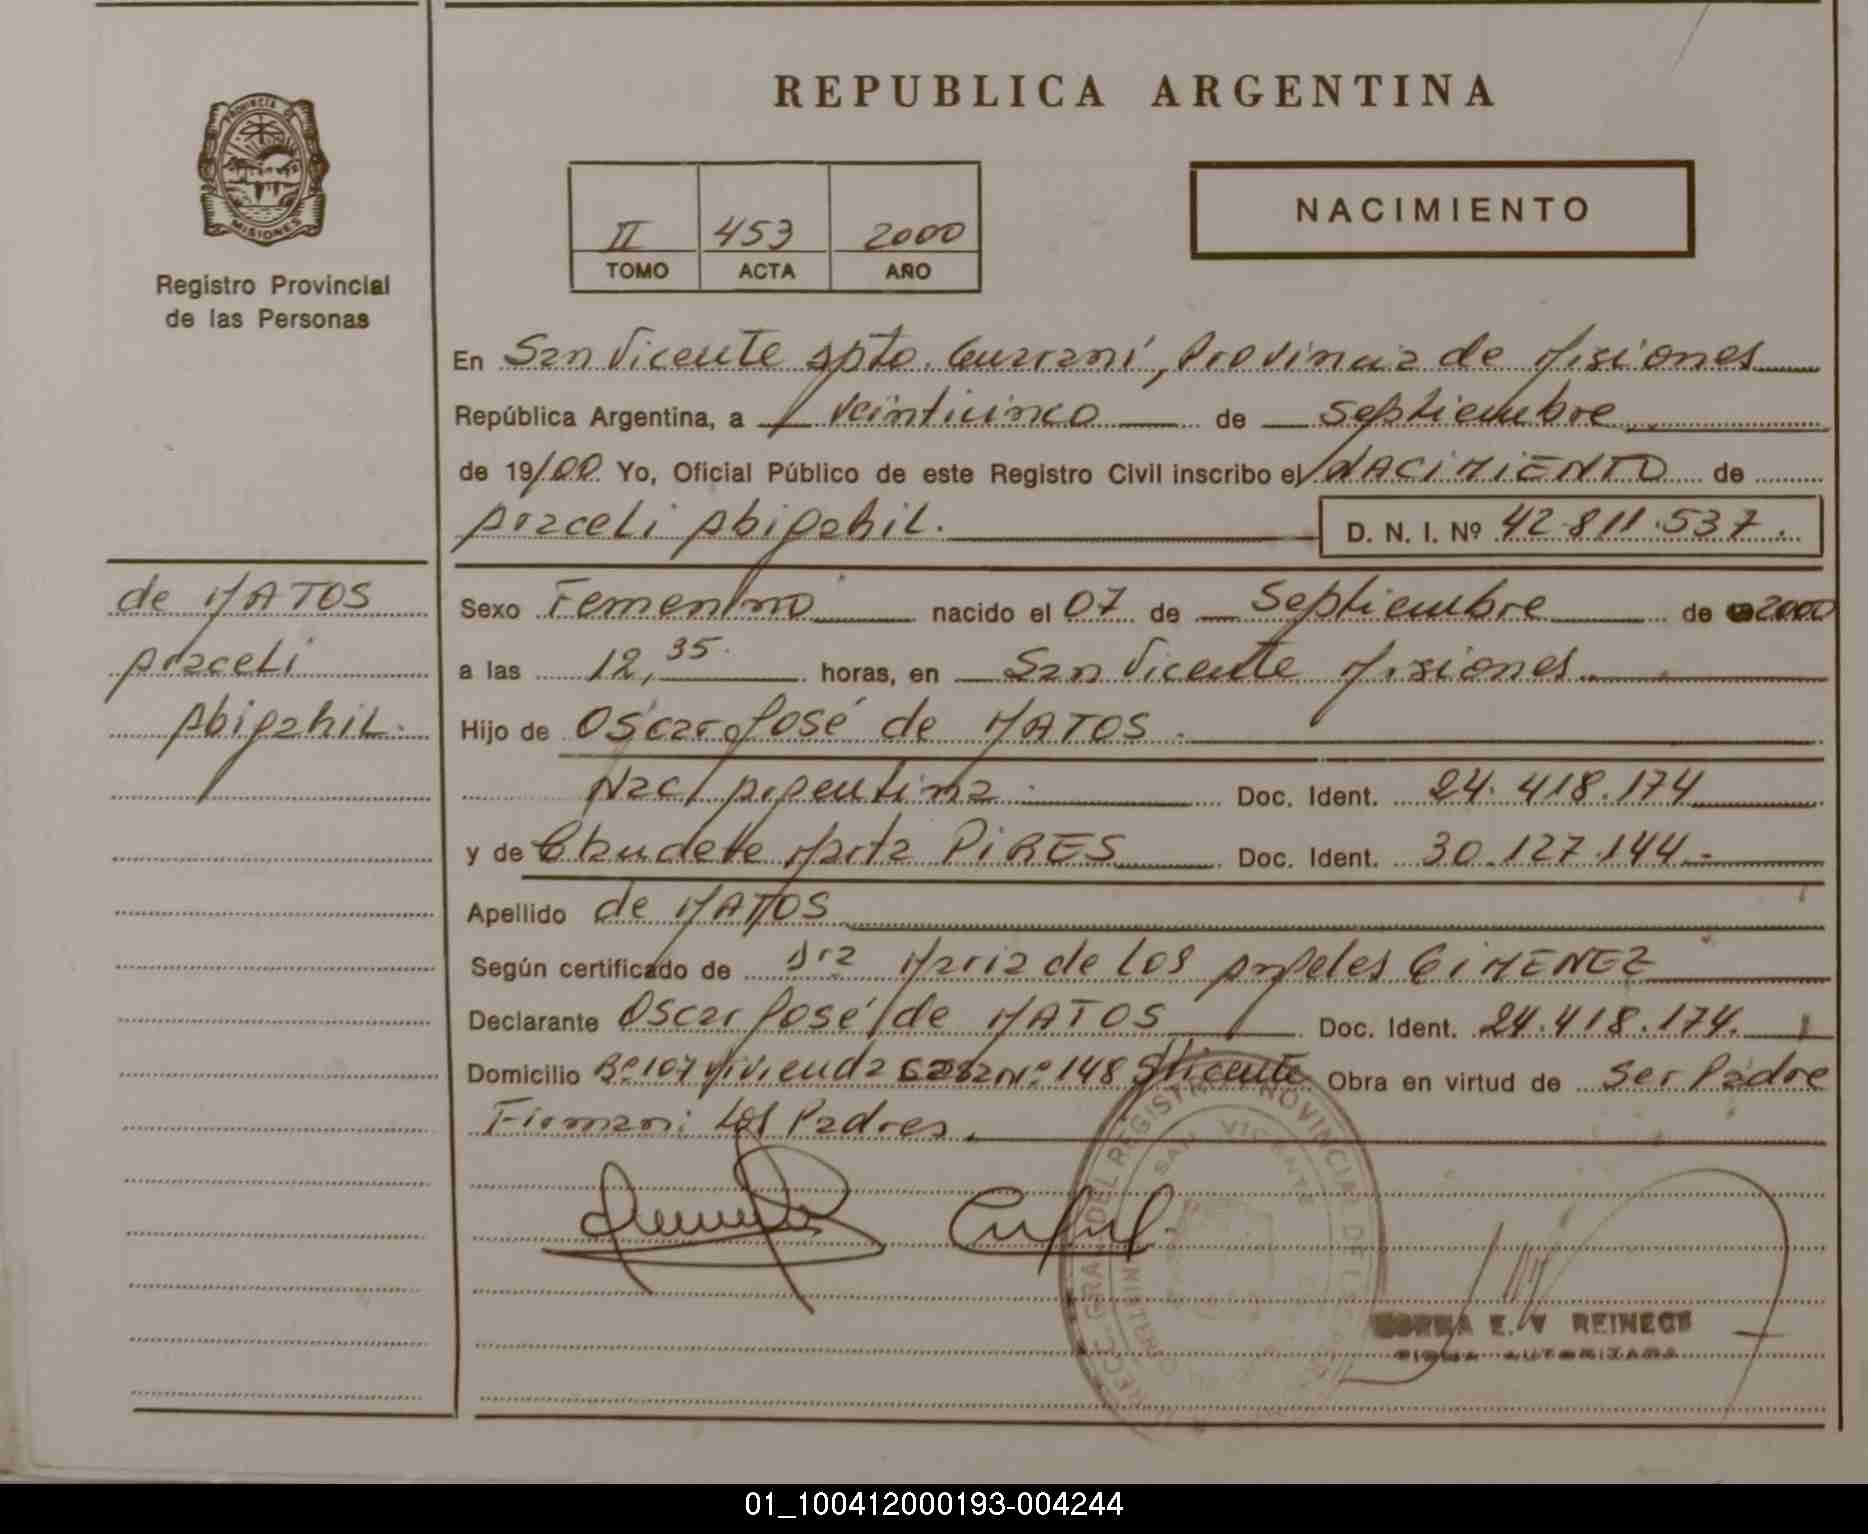 REPUBLICA ARGENTINA
PROVINCIA DE
MISIONES
Registro Provincial
de las Personas
II 453 2000
TOMO ACTA AÑO
NACIMIENTO
En San Vicente Dpto. Guarani, Provincia de Misiones
República Argentina, a veinticinco de Septiembre
de 19/00 Yo, Oficial Público de este Registro Civil inscribo el NACIMIENTO de
Araceli Abigahil. D. N. I. Nº 42.811.537.
de MATOS
Araceli
Abigahil.
Sexo Femenino nacido el 07 de Septiembre de 2000
a las 12,35. horas, en San Vicente Misiones.
Hijo de Oscar José de MATOS.
Nac/ Argentina. Doc. Ident. 24.418.174
y de Claudete Marta PiRES Doc. Ident. 30.127.144.-
Apellido de MATOS
Según certificado de Dra Maria de Los Angeles GiMENEZ
Declarante Oscar José de MATOS Doc. Ident. 24.418.174.
Domicilio Bº 107 Vivienda Casa Nº 148 S/Vicente Obra en virtud de ser Padre
Firman: Los Padres.
SAN VICENTE
E. V REINECE
FIRMA AUTORIZADA
01_100412000193-004244